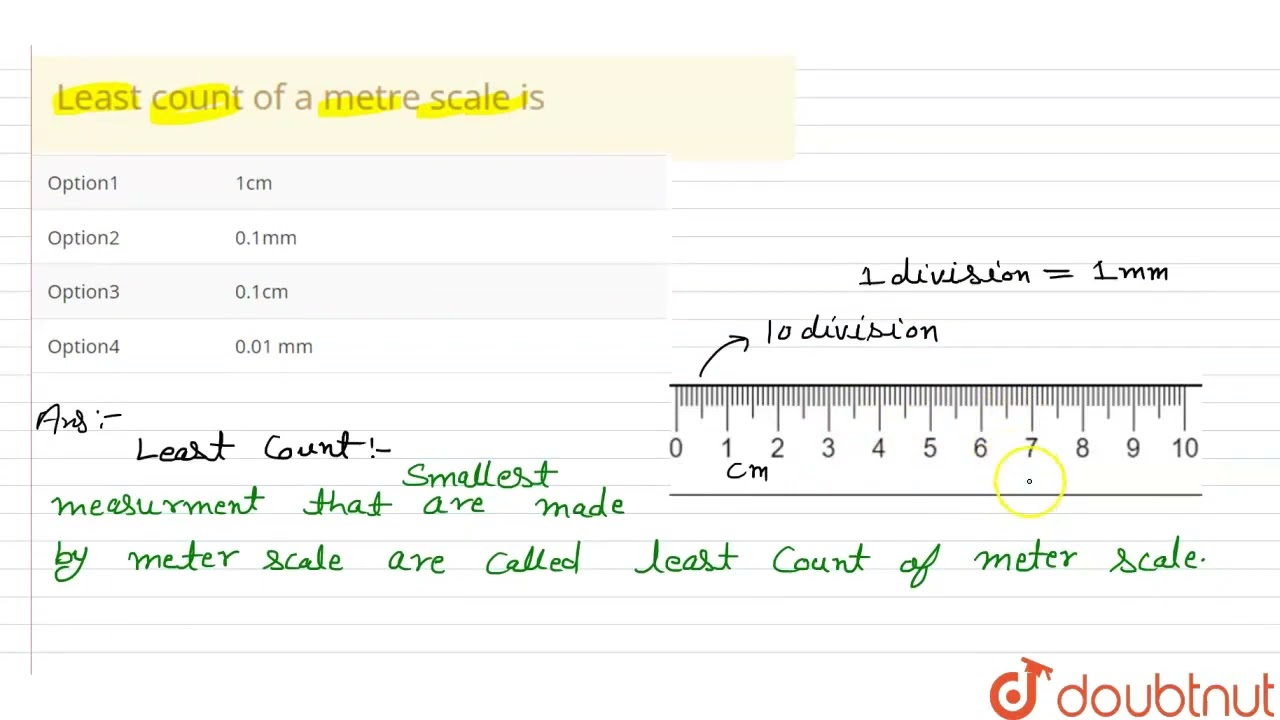 Least count of a metre scale is
Option1 1cm
Option2 0.1mm
Option3 0.1cm
Option4 0.01 mm
1 division = 1 mm
10 division
0 1 2 3 4 5 6 7 8 9 10
cm
Ans:-
Least Count:-
Smallest
measurment that are made
by meter scale are called least count of meter scale.
doubtnut